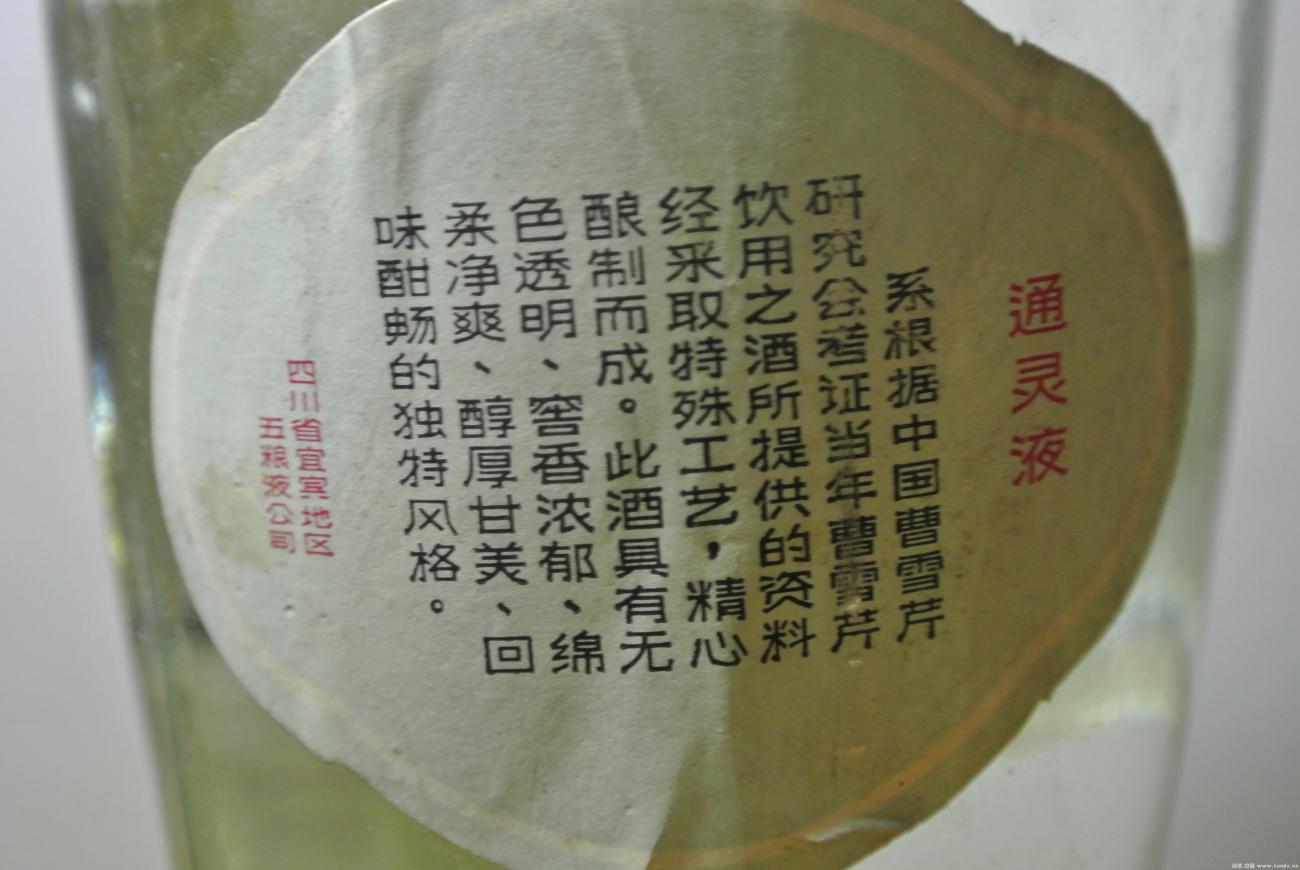 通灵液
系根据中国曹雪芹
研究会考证当年曹雪芹
饮用之酒所提供的资料
经采取特殊工艺，精心
酿制而成。此酒具有无
色透明、窖香浓郁、绵
柔净爽、醇厚甘美、回
味酣畅的独特风格。
四川省宜宾地区
五粮液公司